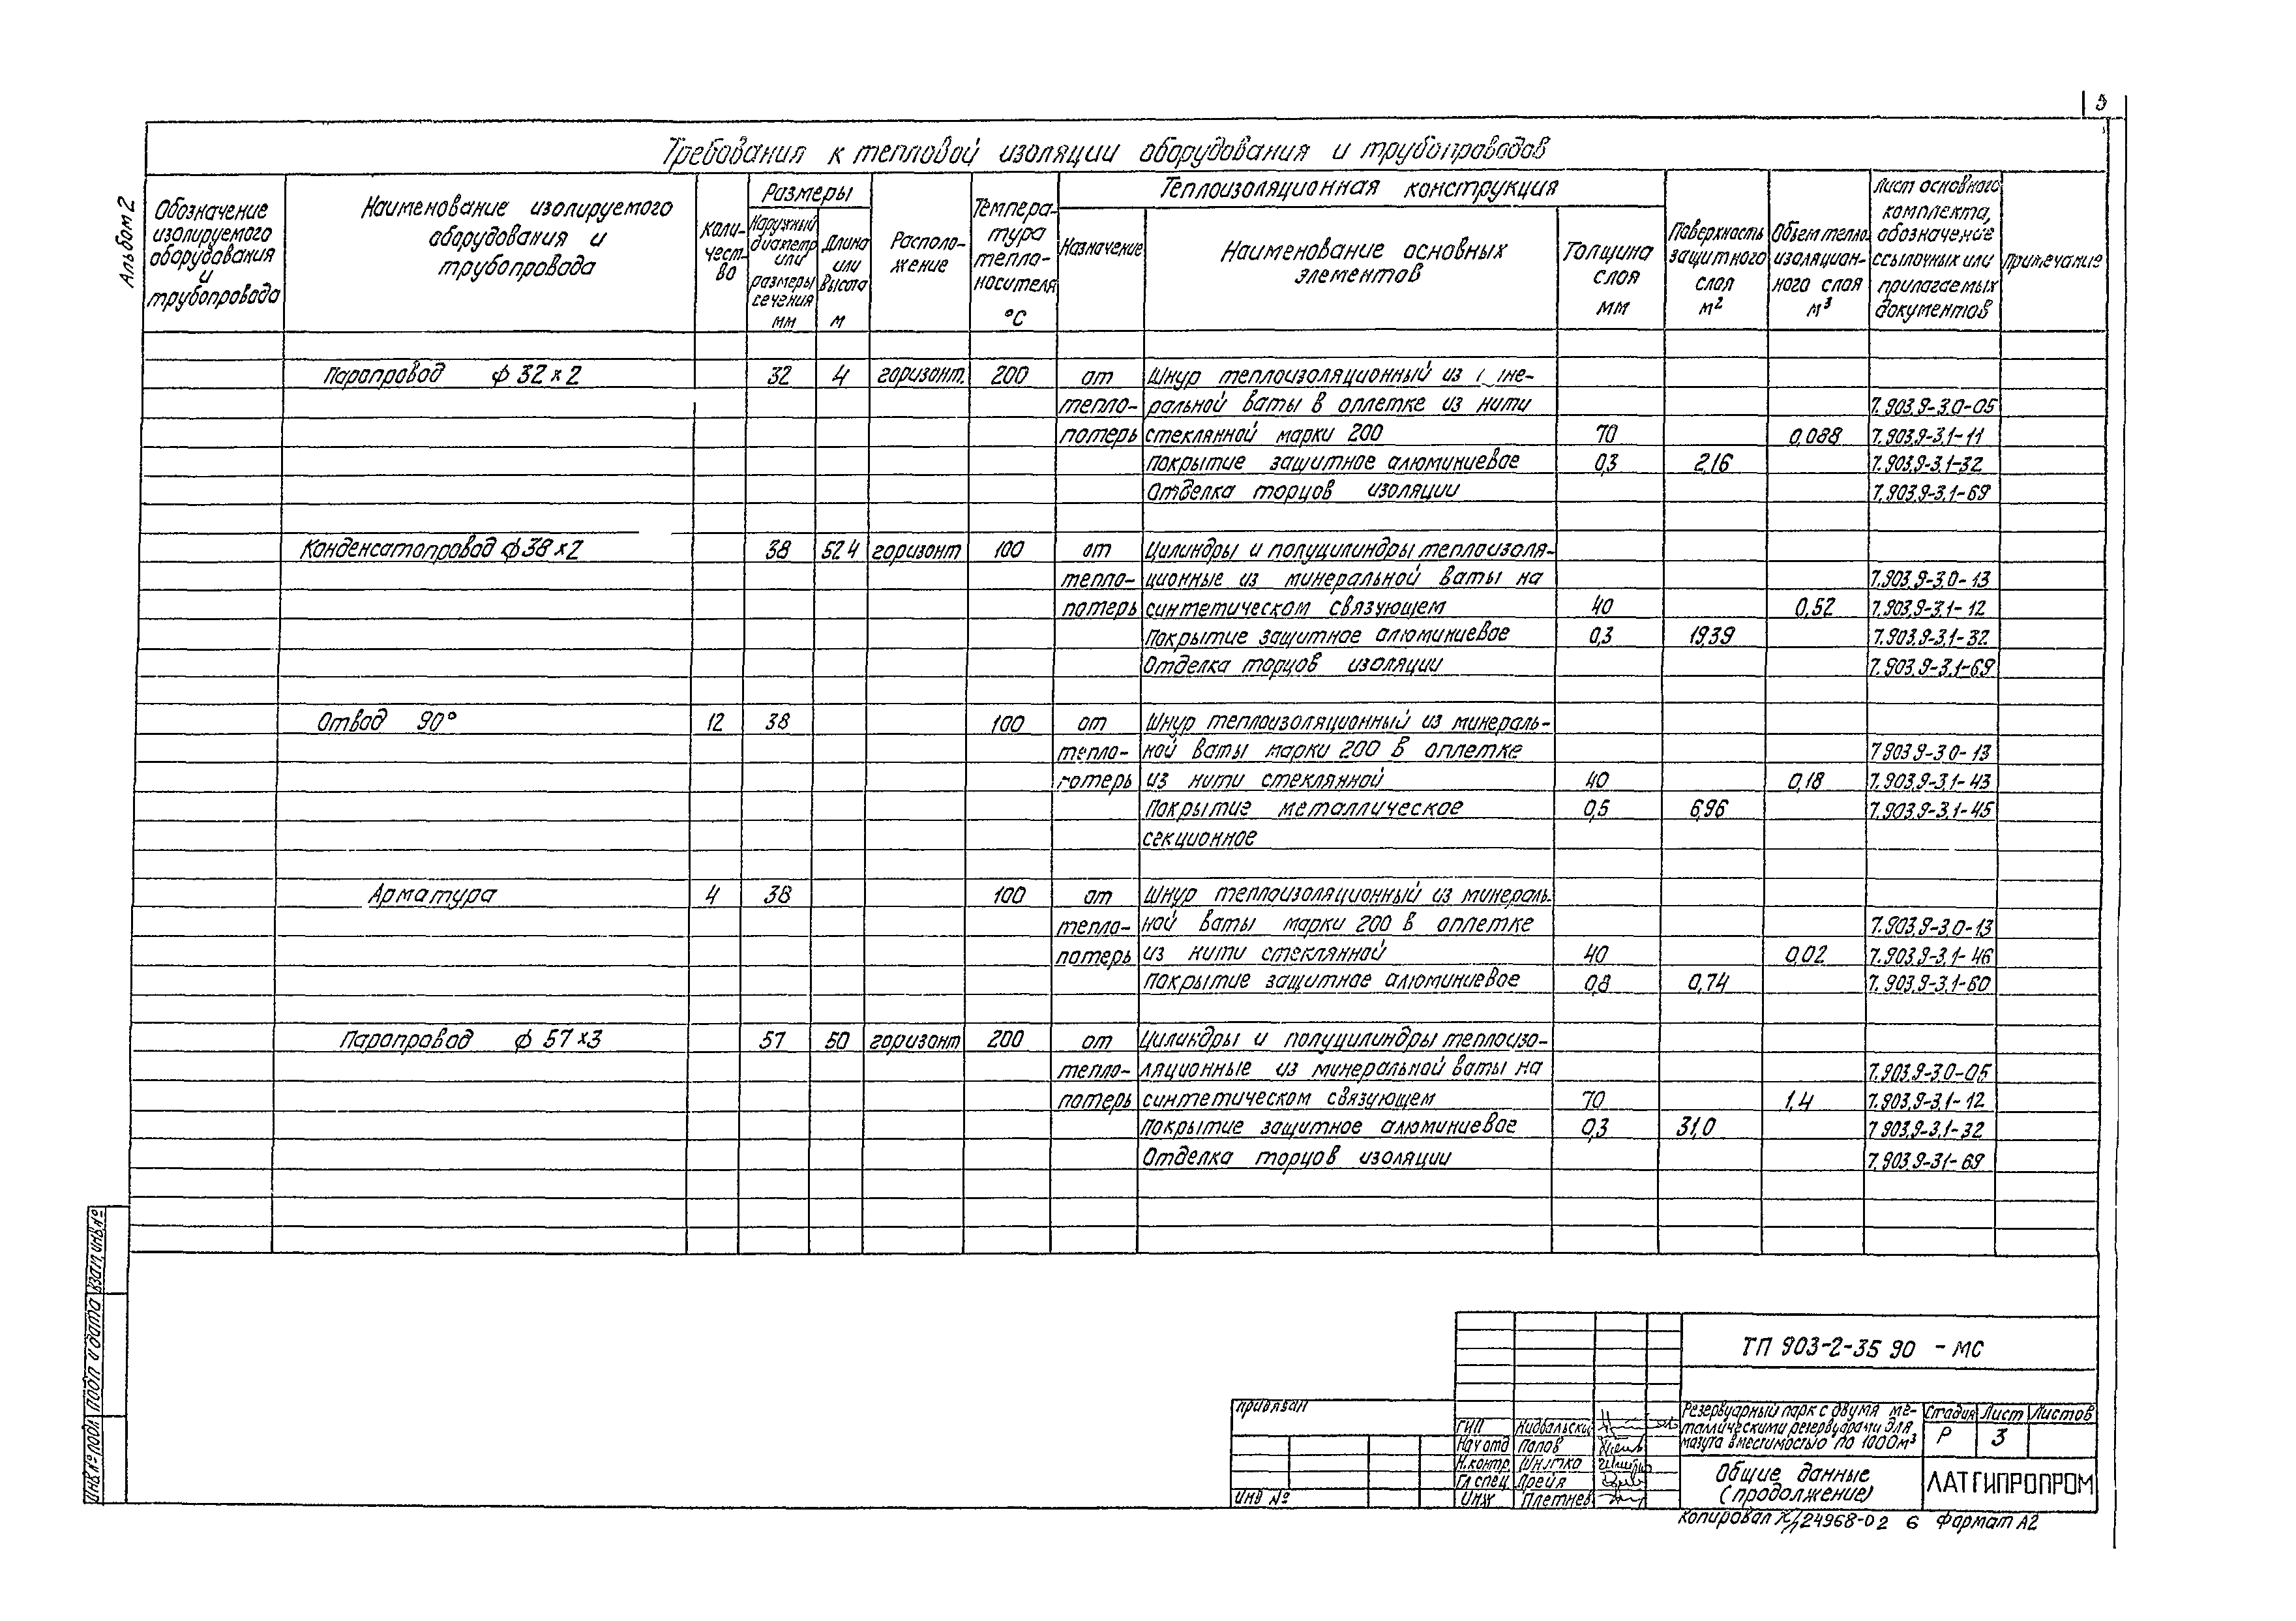 5
Альбом 2
Требования к тепловой изоляции оборудования и трубопроводов
Обозначение изолируемого оборудования и трубопровода
Наименование изолируемого оборудования и трубопровода
Количество
Размеры
Наружный диаметр или размеры сечения мм
Длина или высота м
Расположение
Температура теплоносителя °С
Теплоизоляционная конструкция
Назначение
Наименование основных элементов
Толщина слоя мм
Поверхность защитного слоя м²
Объем теплоизоляционного слоя м³
Лист основного комплекта, обозначение ссылочных или прилагаемых документов
Примечание
Паропровод ф 32 x 2 32 4 горизонт. 200 от Шнур теплоизоляционный из
тепло- ральной ваты в оплетке из нити 7.903.9-3.0-05
потерь стеклянной марки 200 70 0,088 7.903.9-3.1-11
Покрытие защитное алюминиевое 0,3 2,16 7.903.9-3.1-32
Отделка торцов изоляции 7.903.9-3.1-69
Конденсатопровод ф 38 x 2 38 52 4 горизонт 100 от Цилиндры и полуцилиндры теплоизоля-
тепло- ционные из минеральной ваты на 7.903.9-3.0-13
потерь синтетическом связующем 40 0,52 7.903.9-3.1-12
Покрытие защитное алюминиевое 0,3 19,39 7.903.9-3.1-32
Отделка торцов изоляции 7.903.9-3.1-69
Отвод 90° 12 38 100 от Шнур теплоизоляционный из минераль-
тепло- ной ваты марки 200 в оплетке 7 903.9-3 0-13
потерь из нити стеклянной 40 0,18 7.903.9-3.1-43
Покрытие металлическое 0,5 6,96 7.903.9-3.1-45
секционное
Арматура 4 38 100 от Шнур теплоизоляционный из минераль-
тепло- ной ваты марки 200 в оплетке 7.903.9-3.0-13
потерь из нити стеклянной 40 0,02 7.903.9-3.1-46
Покрытие защитное алюминиевое 0,8 0,74 7.903.9-3.1-60
Паропровод ф 57 x 3 57 50 горизонт 200 от Цилиндры и полуцилиндры теплоизо-
тепло- ляционные из минеральной ваты на 7.903.9-3.0-05
потерь синтетическом связующем 70 1,4 7.903.9-3.1-12
Покрытие защитное алюминиевое 0,3 31,0 7 903.9-3.1-32
Отделка торцов изоляции 7.903 9-31-69
Взам. инв. №
Подп и дата
Инв № подл
Привязан
Инв №
ГИП
Нач отд Попов
Н.контр.
Гл спец Прейя
Инж Плетнев
ТП 903-2-35 90 - МС
Резервуарный парк с двумя ме-
таллическими резервуарами для
мазута вместимостью по 1000м³
Стадия Лист Листов
Р 3
Общие данные
(продолжение)
ЛАТГИПРОПРОМ
Копировал 24968-02 6 Формат А2